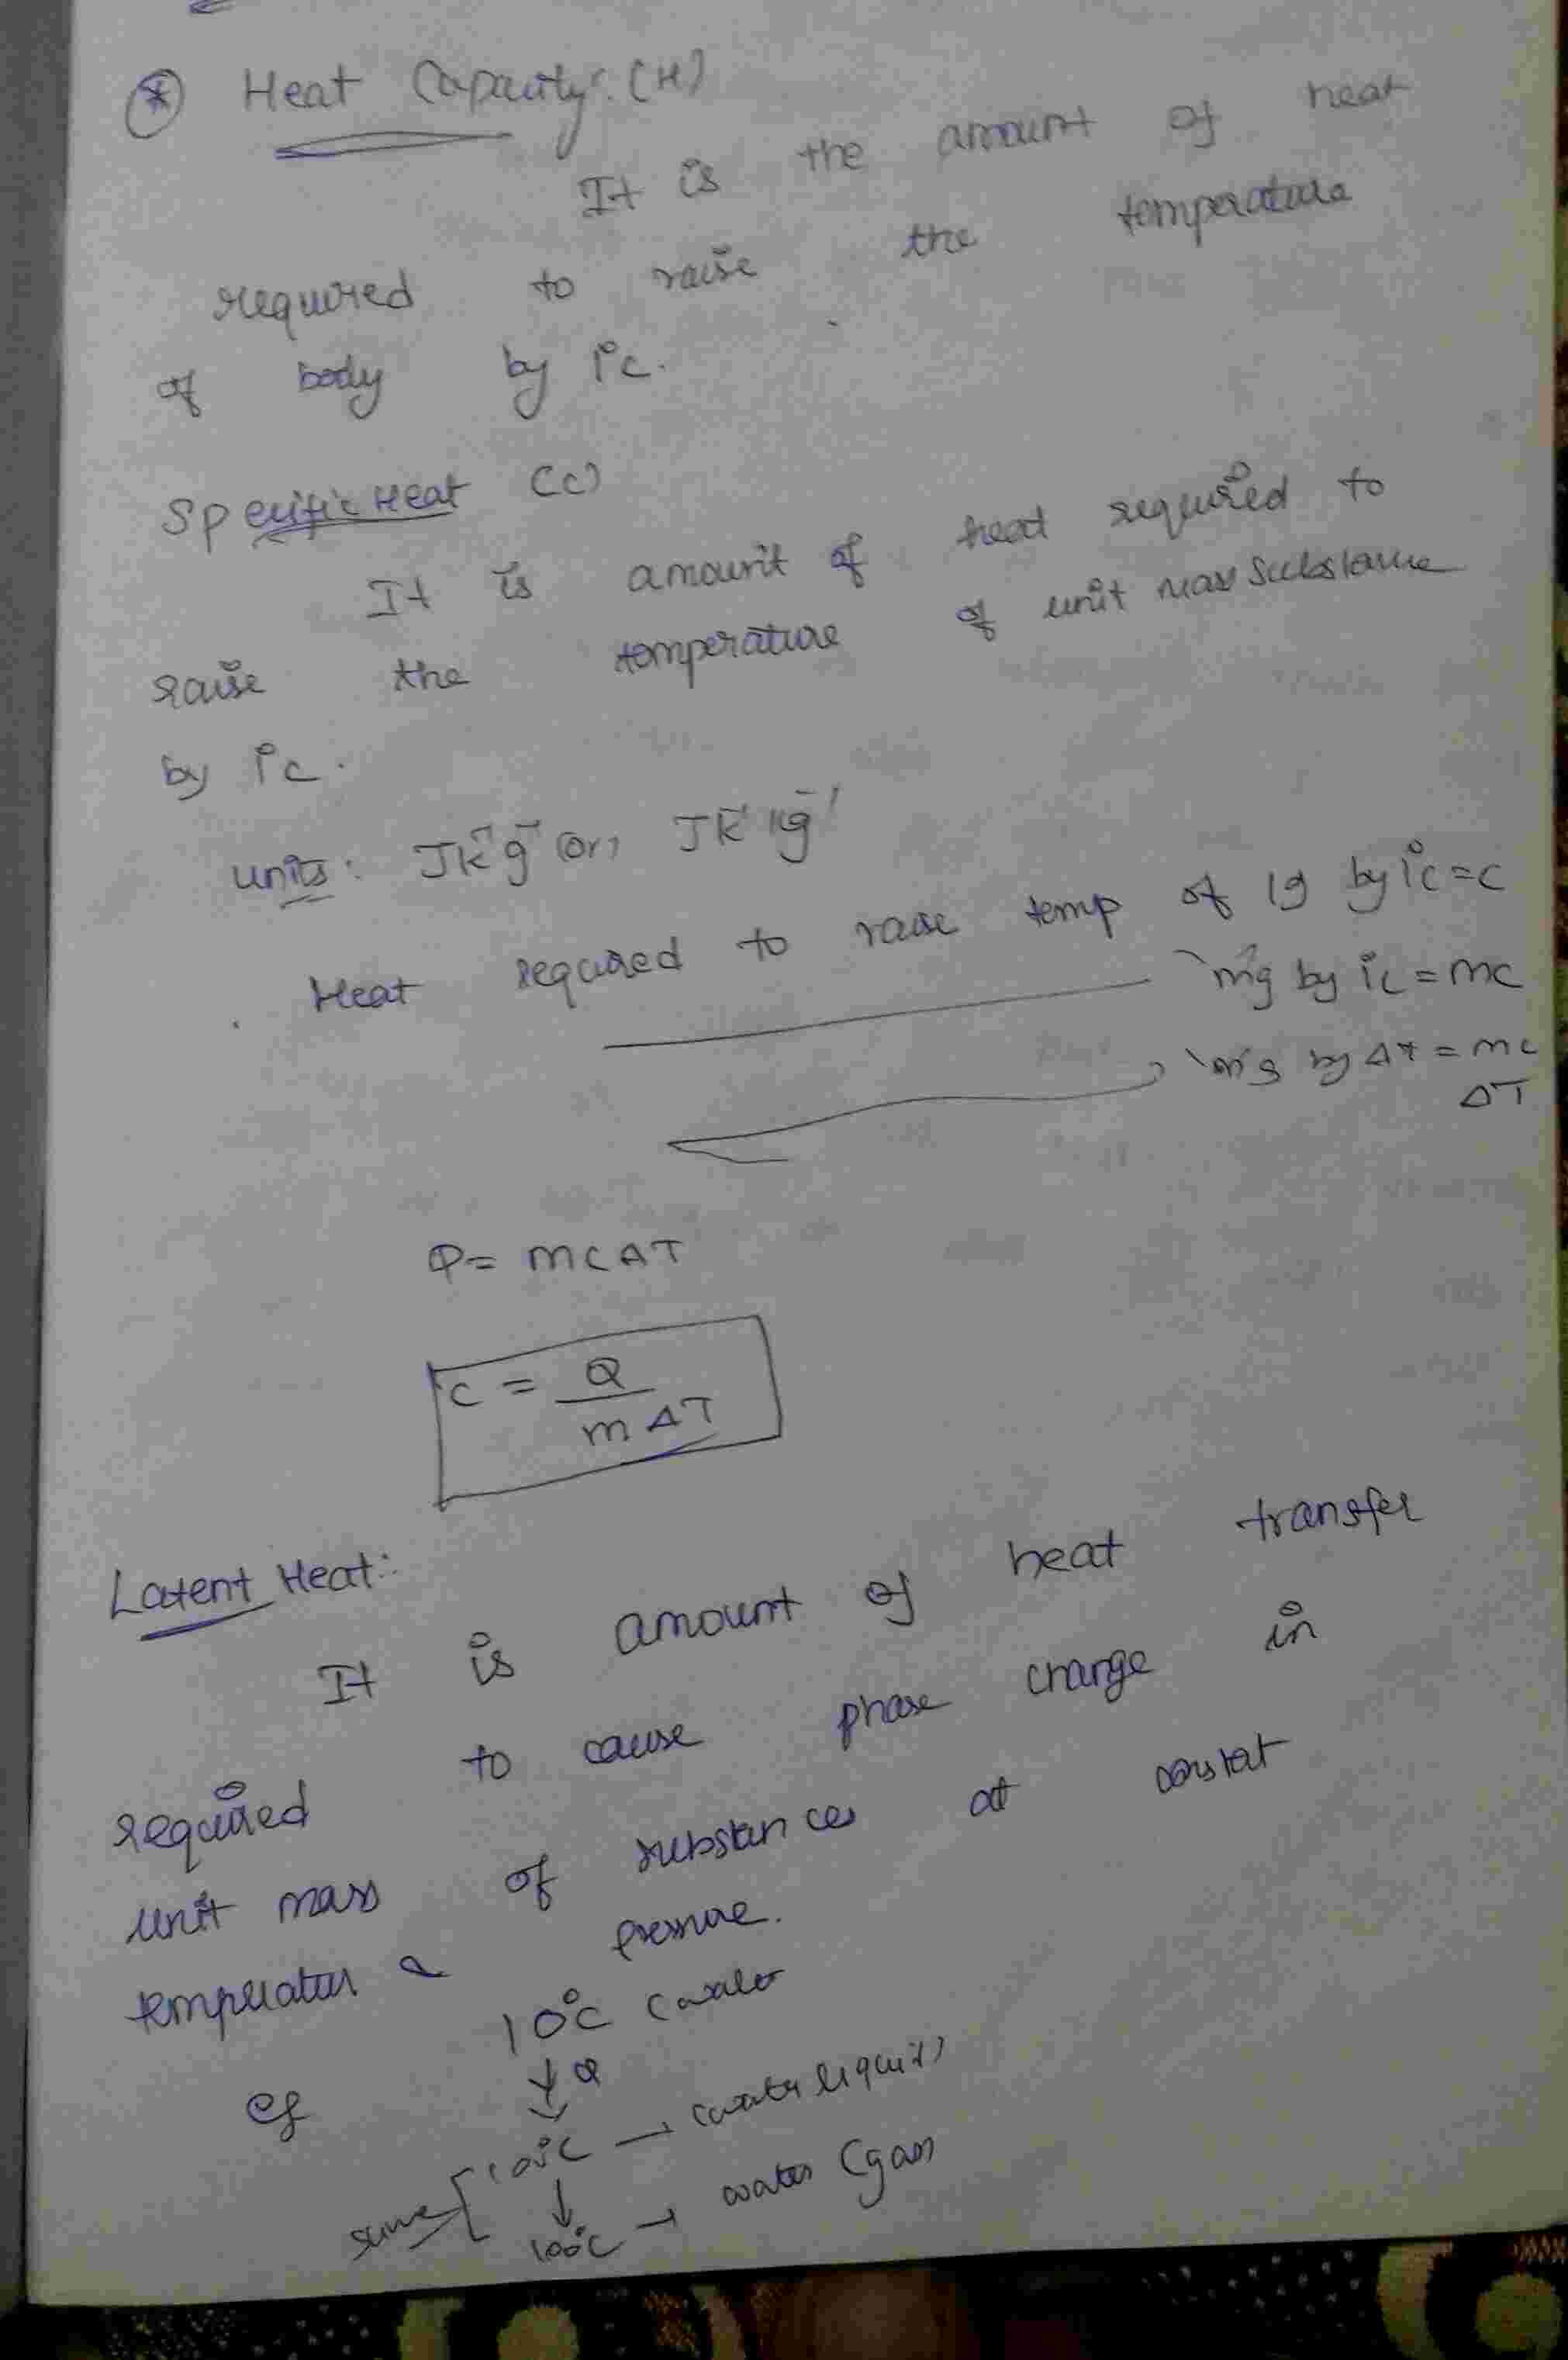 * Heat Capacity: (H)
It is the amount of heat
required to raise the temperature
of body by 1°c.
Specific Heat (c)
It is amount of heat required to
raise the temperature of unit mass substance
by 1°c.
units: JK⁻g⁻ (or) JK⁻¹g⁻¹
Heat required to raise temp of 1g by 1°c = c
'm'g by 1°c = mc
'm'g by Δt = mc
ΔT
Q = mcΔT
c = Q / mΔT
Latent Heat:
It is amount of heat transfer
required to cause phase change in
unit mass of substances at constat
temperatur & pressure.
eg 10°C (water
↓ Q
same [ 100°C → (water liquid)
↓
100°C → water (gas)